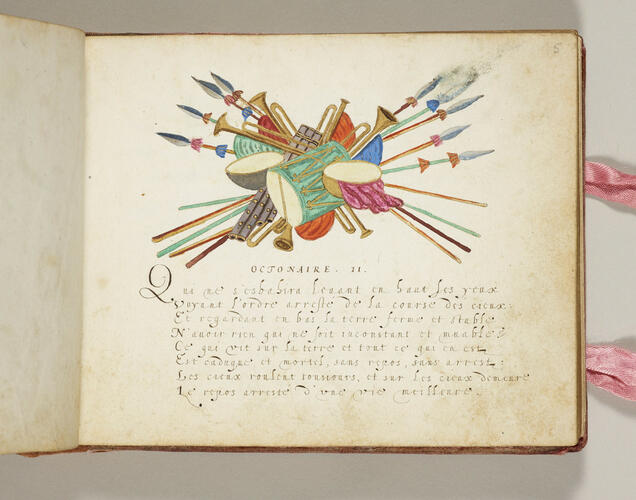 5
OCTONAIRE. II.
Qui ne s'esbahira levant en haut les yeux
Voyant l'ordre arresté de la course des cieux:
Et regardant en bas la terre ferme et stable
N'avoir rien qui ne soit inconstant et muable?
Ce qui vit sur la terre et tout ce qui en est
Est caduque et mortel, sans repos, sans arrest:
Les cieux roulent tousiours, et sur les cieux demeure
Le repos arresté d'une vie meilleure.